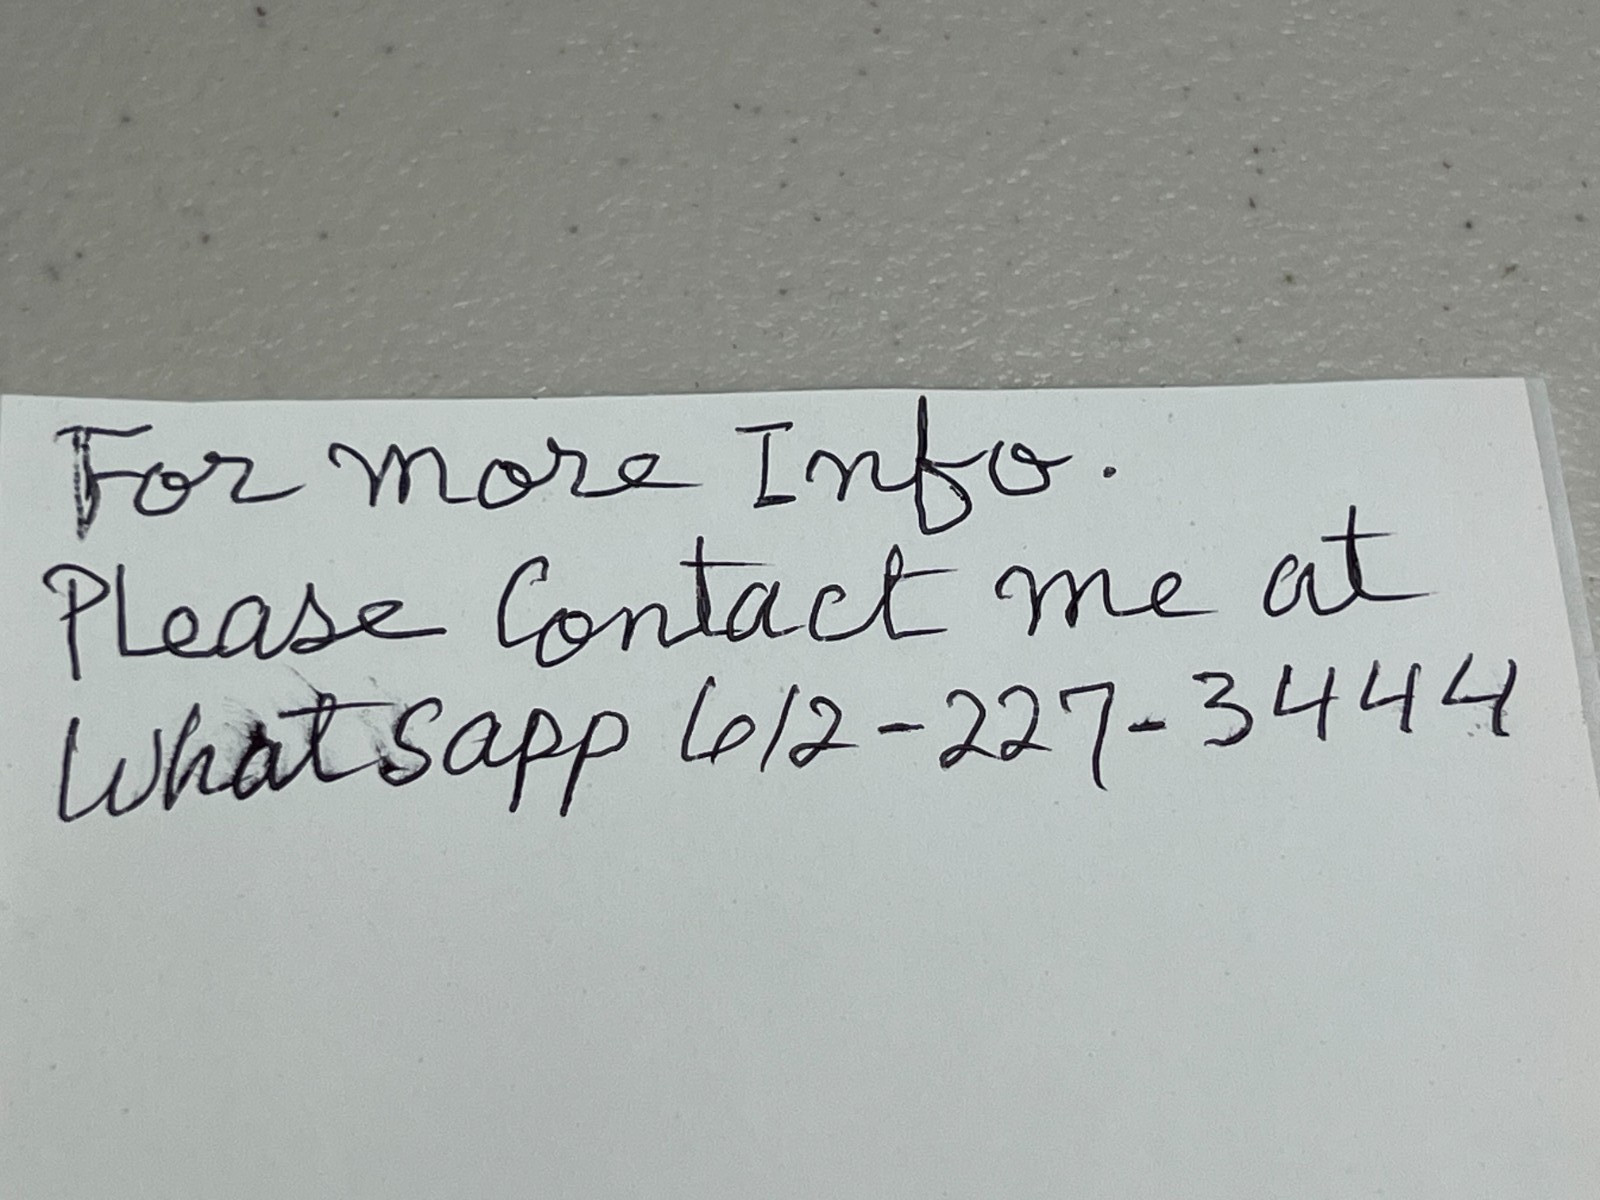 For more Info.
Please Contact me at
Whatsapp 612-227-3444